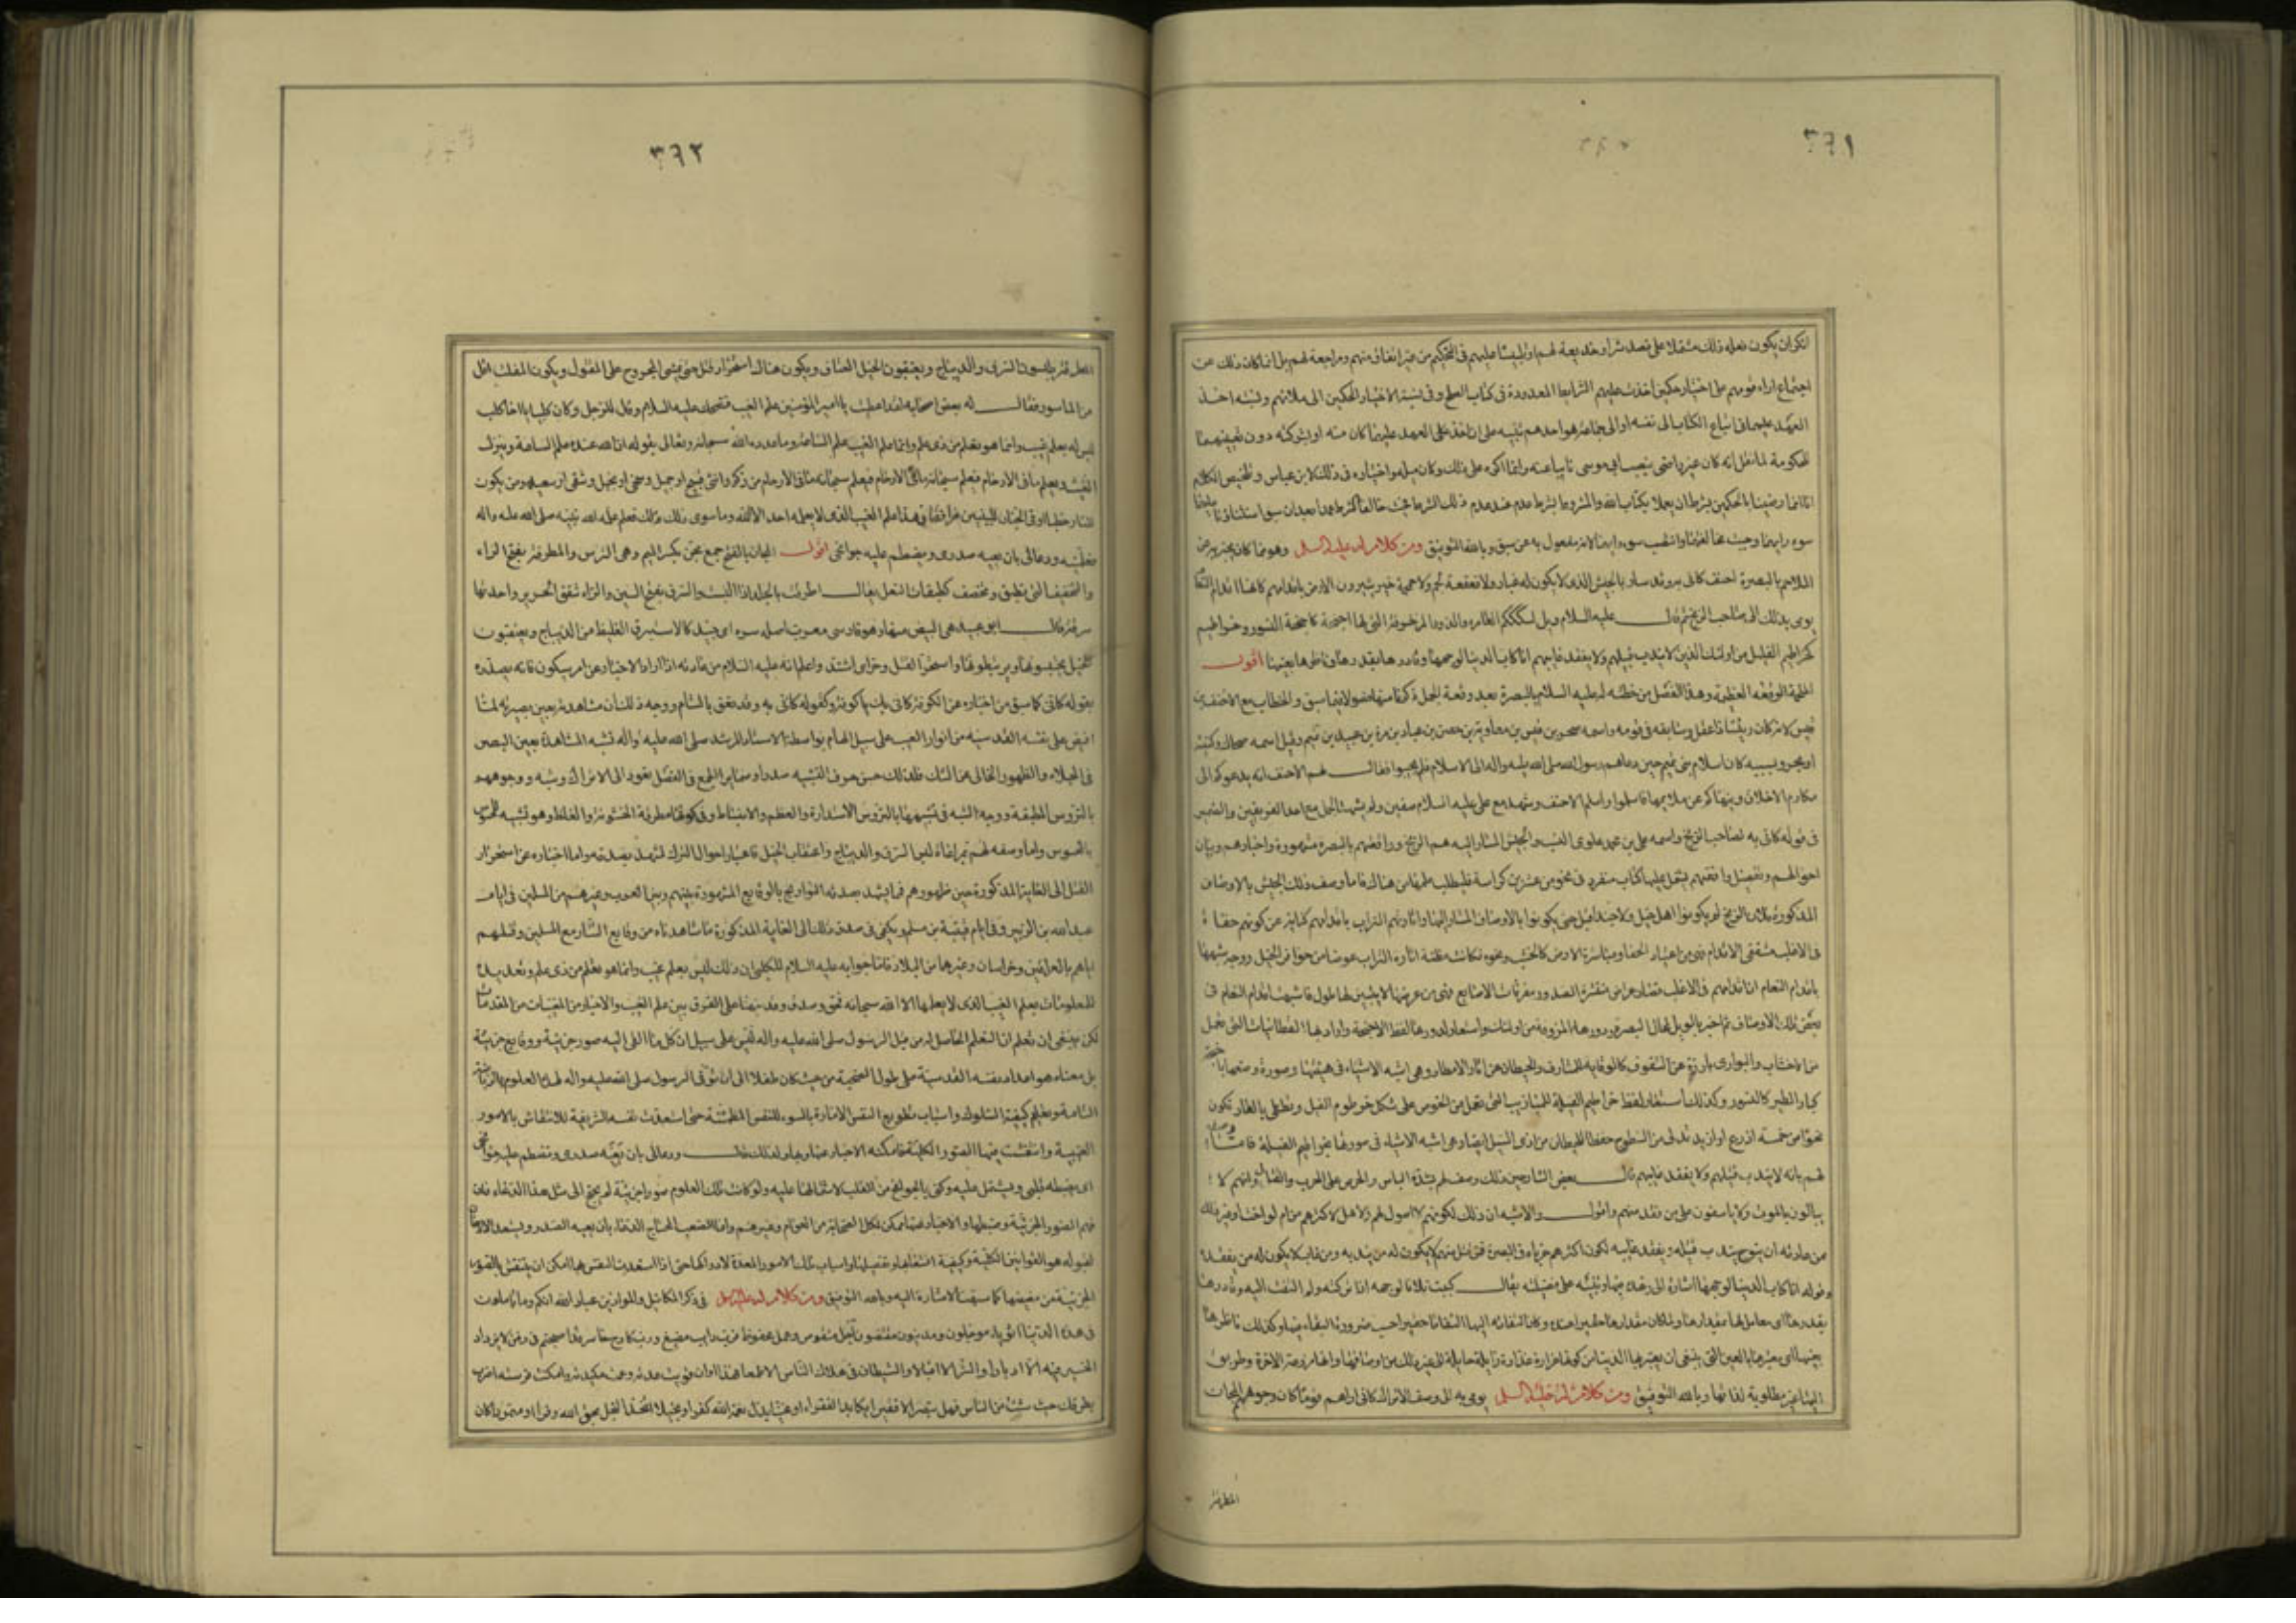 ٣٦١
انكر ان يكون فعله ذلك مشتملا على قصد شر او خديعة لهم او تلبيسا عليهم فى التحكيم من غير اتفاق منهم ومراجعة لهم بل انما كان ذلك عن
اجتماع اراء قومهم على اختيار حكمين اخذت عليهم الشرايط المعدودة فى كتاب الصلح وفى نسبة الاختيار للحكمين الى ملائهم
العهد عليهما فى اتباع الكتاب الى نفسه او الى جماعة هو احدهم تنبيه على ان اخذ على العهد عليهما كان منه او بشركته دون
للحكومة لما نقل انه كان غير راضى بنصب ابى موسى نايبا عنه وانما اكره على ذلك وكان ميله واختياره فى ذلك لابن عباس وتلخيص الكلام
انا انما رضينا بالحكمين بشرط ان يعملا بكتاب الله والمشروط بشرط عدم عند عدم ذلك الشرط
سوء رايهما وحيث خالف وانتصب سوء رايهما لانه مفعول به عن سبق وبالله التوفيق ومن كلام له عليه السلام وهو مما كان يخبر به عن
الملاحم بالبصرة احنف كانى به وقد سار بالجيش الذى لا يكون له غبار ولا لجب ولا قعقعة لجم ولا حمحمة خيل يثيرون الارض باقدامهم كانها اقدام النعام
يومى بذلك الى صاحب الزنج ثم قال عليه السلام ويل لسكككم العامرة والدور المزخرفة التى لها اجنحة كاجنحة النسور وخراطيم
كخراطيم الفيلة من اولئك الذين لا يندب قتيلهم ولا يفقد غايبهم انا كاب الدنيا لوجهها وقادرها بقدرها وناظرها بعينها اقول
الملحمة الوقعة العظيمة وهذا الفصل من خطبة له عليه السلام بالبصرة بعد وقعة الجمل ذكرنا منها فصولا فيما سبق والخطاب مع الاحنف بن
قيس لانه كان رئيسا ذا عقل وسابقة فى قومه واسمه صخر بن قيس بن معاوية بن حصن بن عباد بن مرة بن عبيد بن تميم وقيل اسمه ضحاك وكنيته
ابو بحر وبسببه كان اسلام بنى تميم حين دعاهم رسول الله صلى الله عليه واله الى الاسلام فلم يجيبوا فقال لهم الاحنف انه يدعوكم الى
مكارم الاخلاق وينهاكم عن ملائمها فاسلموا واسلم الاحنف وشهد مع على عليه السلام صفين ولم يشهد الجمل مع احد الفريقين والضمير
فى قوله كانى به لصاحب الزنج واسمه على بن محمد علوى النسب والجيش المشار اليه هم الزنج وواقعتهم بالبصرة مشهورة واخبارهم وبيان
احوالهم وتفصيل واقعتهم يشتمل عليها كتاب منفرد فى نحو من عشرين كراسة فليطلب علمها من هناك فاما وصف ذلك الجيش بالاوصاف
المذكورة فلان الزنج لم يكونوا اهل خيل ولا جند من قبل حتى يكونوا بالاوصاف المشار اليها واثارتهم التراب باقدامهم كناية عن كونهم حفاة
فى الاغلب مشققى الاقدام
باقدام النعام انا
من الاخشاب والبوارى بارزة عن السقوف كالوقاية للمشارف والحيطان عن اثار الامطار وهى اشبه الاشياء فى هيئتها وصورة وضعها باجنحة
كبار الطير كالنسور وكذلك استعار لفظ خراطيم الفيلة للميازيب التى تعمل من الخوص على شكل خرطوم الفيل وتطلى بالقار تكون
نحوا من خمسة اذرع او ازيد تدلى من السطوح حفظا للحيطان من اذى السيل ايضا وهى اشبه الاشياء فى صورتها بخراطيم الفيلة فاما وصفه
لهم بانه لا يندب قتيلهم ولا يفقد غايبهم قال بعض الشارحين ذلك وصف لهم بشدة الباس والحرص على الحرب والقتال وانهم لا
يبالون بالموت ولا ياسفون على من فقد منهم واقول والاشبه ان ذلك لكونهم لا اصول لهم ولا اهل لاكثرهم من ام او اخت او غير ذلك
ممن عادته ان ينوح يندب قتيله ويفقد غايبه لكون اكثرهم غرباء فى البصرة فمن قتل منهم لا يكون له من يندبه ومن غاب لا يكون له من يفقده
وقوله انا كاب الدنيا لوجهها اشارة الى زهده فيها وتنبيه على فضيلته يقال كببت فلانا لوجهه اذا تركته ولم التفت اليه وقادرها
بقدرها اى معامل لها بمقدارها ولما كان مقدارها حقيرا عنده وكان التفاته اليها التفاتا حقيرا حسب ضرورة البقاء فيها وكذلك ناظرها
بعينها اى معتبرها بالعين التى ينبغى ان يعتبرها الدنيا من كونها غرارة غدارة زايلة حايلة الى غير ذلك من اوصافها وانها مزرعة الاخرة وطريق
اليها غير مطلوبة لذاتها وبالله التوفيق ومن كلام له عليه السلام يومى به الى وصف الاتراك كانى اراهم قوما كان وجوههم المجان
المطرقة
٣٦٢
يلبسون السرق والديباج ويعتقبون الخيل العتاق ويكون هناك استحرار قتل حتى يمشى المجروح على المقتول ويكون المفلت اقل
من الماسور فقال له بعض اصحابه لقد اعطيت يا امير المؤمنين علم الغيب فضحك عليه السلام وقال للرجل وكان كلبيا يا اخا كلب
ليس له بعلم غيب وانما هو تعلم من ذى علم وانما علم الغيب علم الساعة وما عدده الله سبحانه وتعالى بقوله ان الله عنده علم الساعة وينزل
الغيث ويعلم ما فى الارحام فيعلم سبحانه ما فى الارحام من ذكر وانثى وقبيح او جميل وسخى او بخيل وشقى او سعيد ومن يكون
للنار حطبا او فى الجنان للنبيين مرافقا فهذا علم الغيب الذى لا يعلمه احد الا الله وما سوى ذلك فعلم علمه الله نبيه صلى الله عليه واله
فعلمنيه ودعا لى بان يعيه صدرى ويضطم عليه جوانحى اقول المجان بالفتح جمع مجن بكسر الميم وهى الترس والمطرقة بفتح الراء
والتخفيف التى تطبق وتخصف كطبقات النعل يقال اطرقت بالجلد اذا البست والسرق بفتح السين والراء شقق الحرير واحدتها
سرقة قال ابو عبيد هى البيض منها وهو فارسى معرب اصله سره اى جيد كالاستبرق الغليظ من الديباج ويعتقبون
الخيل يحتبسونها ويرتبطونها واستحر القتل وحر اى اشتد واعلم انه عليه السلام من عادته اذا اراد الاخبار عن امر سيكون فانه يصدره
بقوله كانى كما سبق من اخباره عن الكوفة كانى بك يا كوفة وكقوله كانى به وقد نعق بالشام ووجه ذلك ان مشاهدته بعين بصيرته لما
افيض على نفسه القدسية من انوار الغيب على سبيل الهام بواسطة الاستاد المرشد صلى الله عليه واله تشبه المشاهدة بعين البصر
فى الجلاء والظهور الخالى عن الشك فلذلك حسن حرف التشبيه صدرا وضماير الجمع فى الفصل تعود الى الاتراك وشبه وجوههم
بالتروس المطبقة ووجه الشبه فى تشبيهها بالتروس الاستدارة والعظم والانبساط وفى كونها مطرقة الخشونة والغلظ وهو تشبيه للمحسوس
بالمحسوس واما وصفه لهم
القتل الى الغاية المذكورة حين ظهورهم فما يشهد بصدقه التواريخ بالوقايع المشهورة بينهم وبين العرب وغيرهم من المسلمين فى ايام
عبد الله بن الزبير وفى ايام قتيبة بن مسلم ويكفى فى صدق ذلك الى الغاية المذكورة ما شاهدناه من وقايع التتار مع المسلمين وقتلهم
اياهم بالعراقين وخراسان وغيرها من البلاد فاما جوابه عليه السلام للكلبى ان ذلك ليس بعلم غيب وانما هو تعلم من ذى علم وتعديده
للمعلومات بعلم الغيب الذى لا يعلمها الا الله سبحانه فحق وصدق وقد نبهنا على الفرق بين علم الغيب والاخبار من المغيبات من المقدمات
لكن ينبغى ان تعلم ان التعلم الحاصل له من قبل الرسول صلى الله عليه واله ليس على سبيل ان كل ما القى اليه صور جزئية ووقايع جزئية
بل معناه هو اعداد نفسه القدسية على طول الصحبة من حيث كان طفلا الى ان توفى الرسول صلى الله عليه واله لهذه العلوم بالرياضة
التامة وتعليم كيفية السلوك واسباب تطويع النفس الامارة بالسوء للنفس المطمئنة حتى استعدت نفسه الشريفة للانتقاش بالامور
الغيبية وانتقشت فيها الصور الكلية فامكنه الاخبار عنها وبها ولذلك قال ودعا لى بان يعيه صدرى وتضطم عليه جوانحى
اى يضبطه قلبى ويشتمل عليه وكنى بالجوانح عن القلب لاشتمالها عليه ولو كانت تلك العلوم صورا جزئية لم يحتج الى مثل هذا الدعاء فان
فهم الصور الجزئية وضبطها والاخبار عنها ممكن لكل الصحابة من العوام وغيرهم وانما الصعب المحتاج الدعاء بان يعيه الصدر ويستعد الاذهان
لقبوله هو القوانين الكلية وكيفية انشعابها وتفصيلها واسباب تلك الامور المعدة لادراكها حتى اذا استعدت النفس بها امكن ان ينتقش بالصور
الجزئية من مفيضها كما سبقت الاشارة اليه وبالله التوفيق ومن كلام له عليه السلام فى ذكر المكائيل والموازين عباد الله انكم وما تاملون
فى هذه الدنيا اثوياء مؤجلون ومدينون مقتضون اجل منقوص وعمل محفوظ فرب دايب مضيع ورب كادح خاسر قد اصبحتم فى زمن لا يزداد
الخير فيه الا ادبارا والشر الا اقبالا والشيطان فى هلاك الناس الا طمعا فهذا اوان قويت عدته وعمت مكيدته وامكنت فريسته اضرب
بطرفك حيث شئت من الناس فهل تبصر الا فقيرا يكابد الفقرا او غنيا بدل نعمة الله كفرا او بخيلا اتخذ البخل بحق الله وفرا او متمردا كان